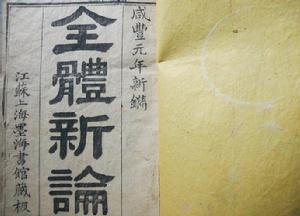 咸豐元年新鐫
全體新論
江蘇上海墨海書館藏板